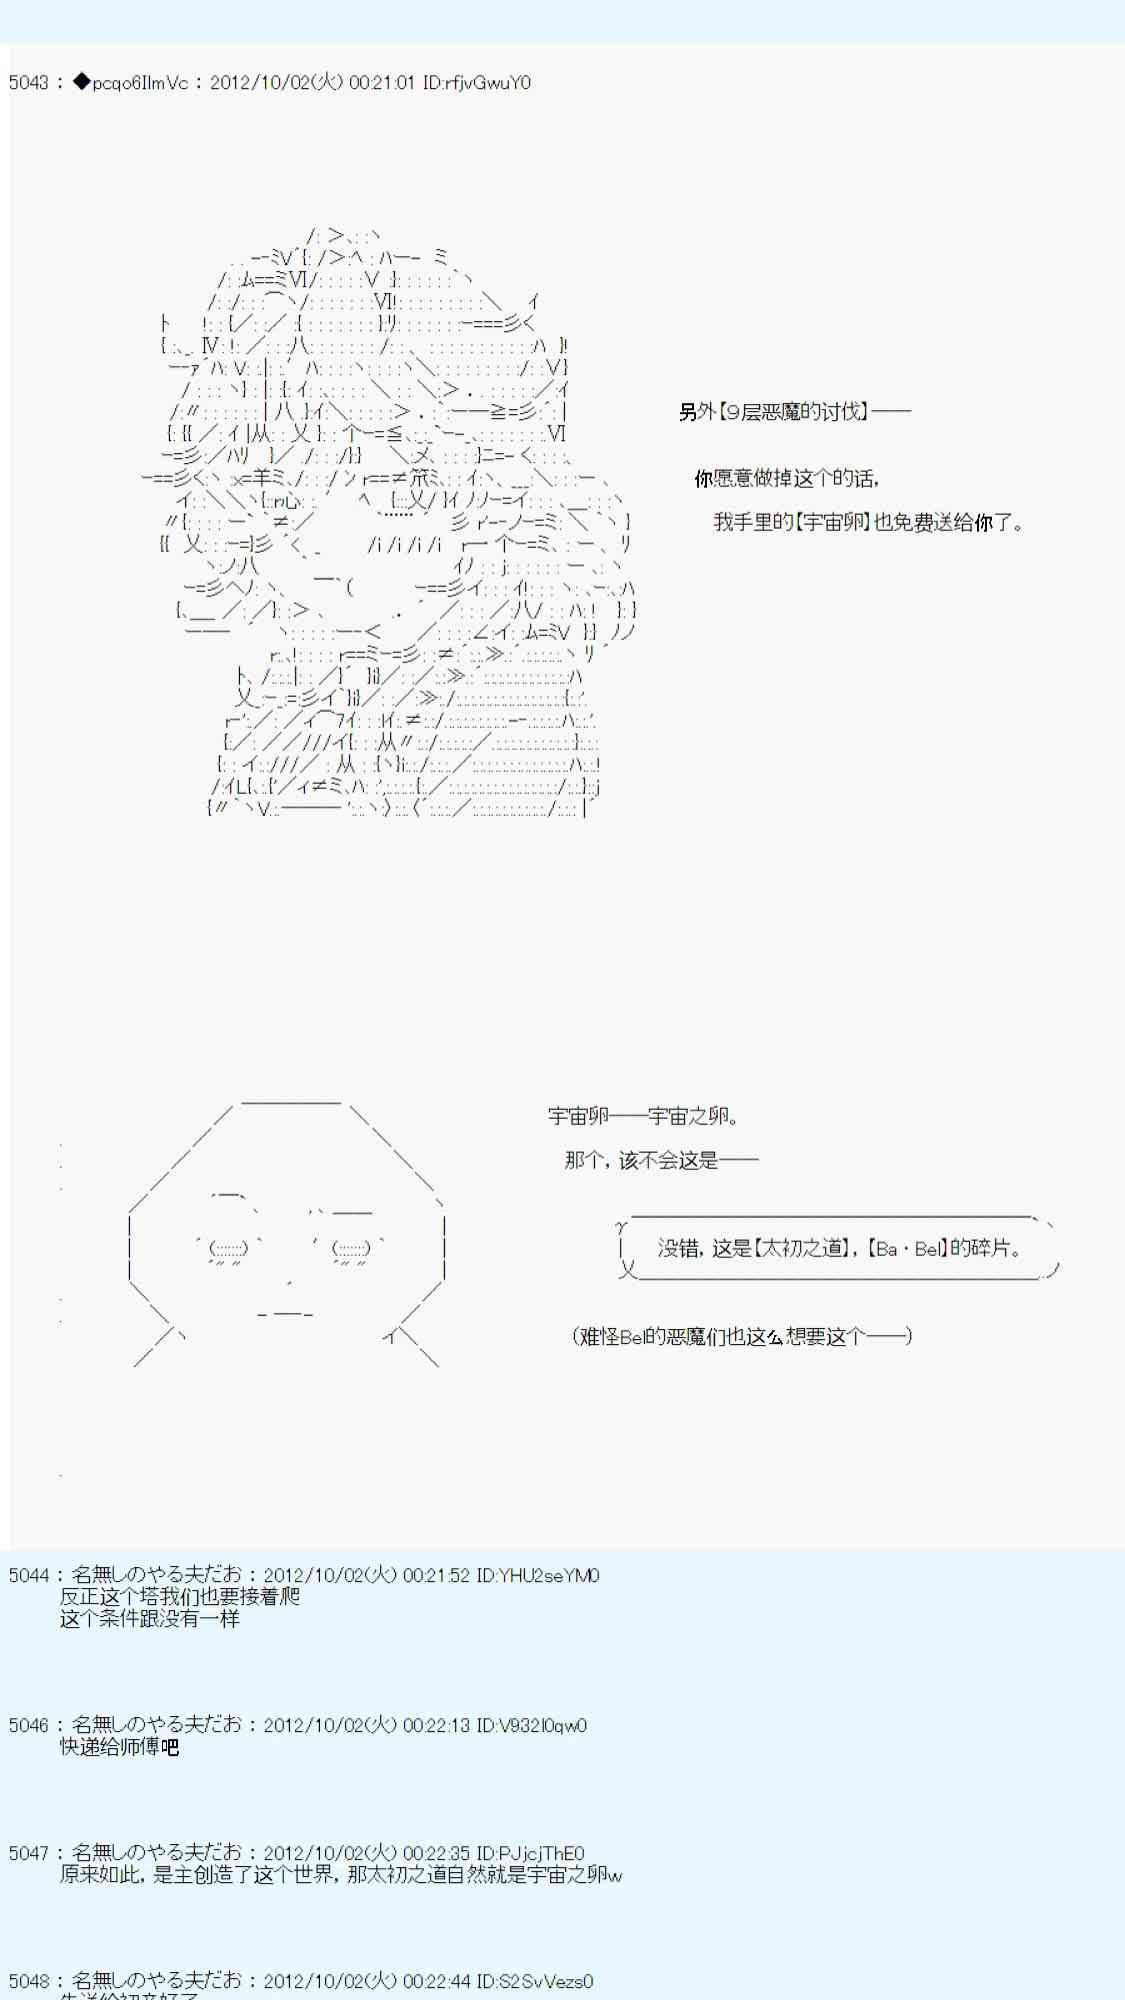 5043 : ◆pcqo6IlmVc : 2012/10/02(火) 00:21:01 ID:rfjvGwuY0
另外【9层恶魔的讨伐】——
你愿意做掉这个的话,
我手里的【宇宙卵】也免费送给你了。
宇宙卵——宇宙之卵。
那个, 该不会这是——
没错, 这是【太初之道】, 【Ba・Bel】的碎片。
(难怪Bel的恶魔们也这么想要这个——)
5044 : 名無しのやる夫だお : 2012/10/02(火) 00:21:52 ID:YHU2seYM0
反正这个塔我们也要接着爬
这个条件跟没有一样
5046 : 名無しのやる夫だお : 2012/10/02(火) 00:22:13 ID:V932l0qw0
快递给师傅吧
5047 : 名無しのやる夫だお : 2012/10/02(火) 00:22:35 ID:PJjcjThE0
原来如此, 是主创造了这个世界, 那太初之道自然就是宇宙之卵w
5048 : 名無しのやる夫だお : 2012/10/02(火) 00:22:44 ID:S2SvVezs0